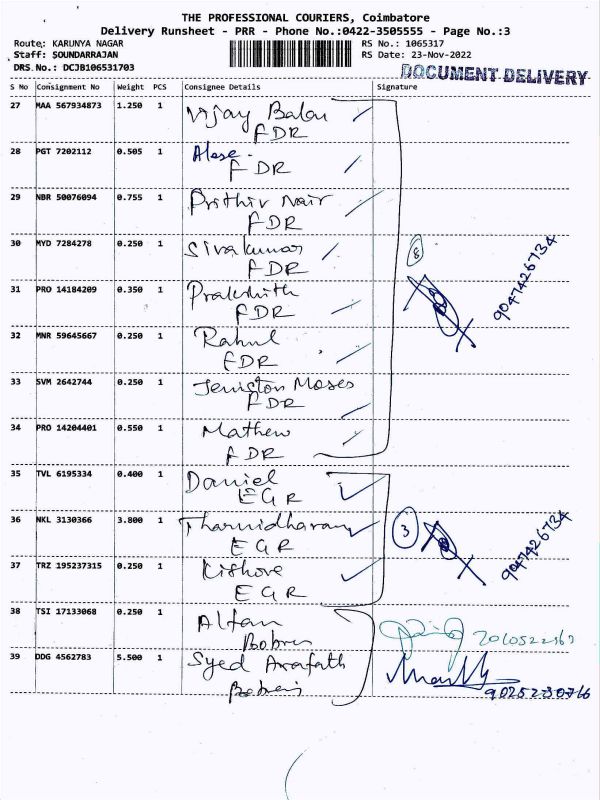 THE PROFESSIONAL COURIERS, Coimbatore
Delivery Runsheet - PRR - Phone No.:0422-3505555 - Page No.:3
Route: KARUNYA NAGAR RS No.: 1065317
Staff: SOUNDARRAJAN RS Date: 23-Nov-2022
DRS No.: DCJB106531703 DOCUMENT DELIVERY
S No Consignment No Weight PCS Consignee Details Signature
27 MAA 567934873 1.250 1 Vijay Balan
FDR
28 PGT 7202112 0.505 1
FDR
29 NBR 50076094 0.755 1 Prithiv Nair
FDR
30 MYD 7284278 0.250 1 Sivakumar
FDR
8
9047426734
31 PRO 14184209 0.350 1 Prakshith
FDR
32 MNR 59645667 0.250 1 Rahul
FDR
33 SVM 2642744 0.250 1 Jeniston Moses
FDR
34 PRO 14204401 0.550 1 Mathew
FDR
35 TVL 6195334 0.400 1 Daniel
EGR
36 NKL 3130366 3.800 1 Tharnidharan
EGR
3
9047426734
37 TRZ 195237315 0.250 1 Kishore
EGR
38 TSI 17133068 0.250 1 Altan
39 DDG 4562783 5.500 1 Syed Arafath